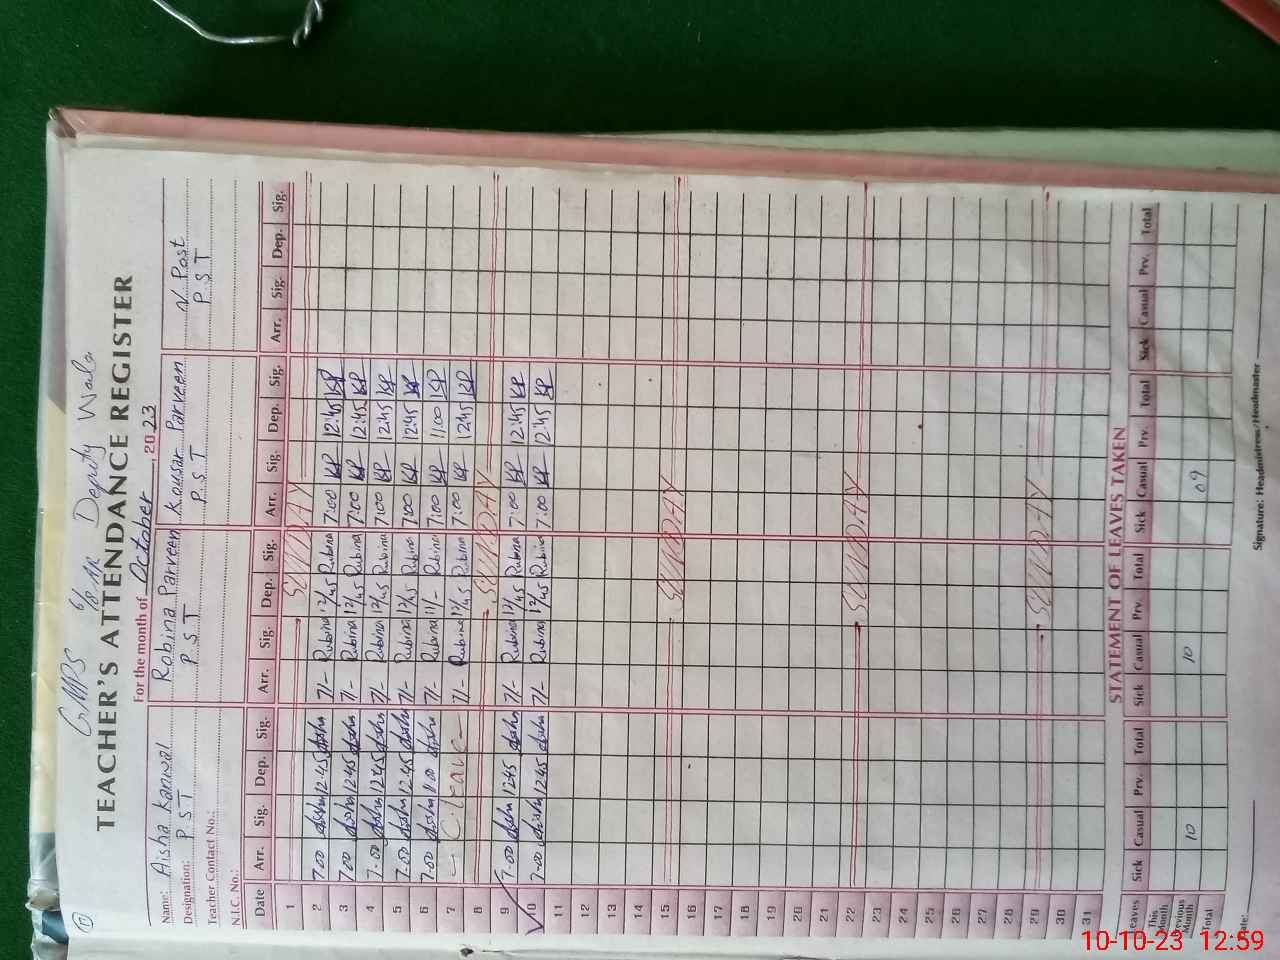 17
GMPS 6/8AR Deputy Wala
TEACHER'S ATTENDANCE REGISTER
For the month of October, 2023
Name: Aisha Kanwal Robina Parveen Kousar Parveen N. Post
Designation: P.S.T P.S.T P.S.T P.S.T
Teacher Contact No.:
N.I.C. No.:
Date Arr. Sig. Dep. Sig. Arr. Sig. Dep. Sig. Arr. Sig. Dep. Sig. Arr. Sig. Dep. Sig.
1 SUNDAY
2 7:00 Aisha 12:45 Aisha 7/- Rubina 12/45 Rubina 7:00 KP 12:45 KP
3 7:00 Aisha 12:45 Aisha 7/- Rubina 12/45 Rubina 7:00 KP 12:45 KP
4 7:00 Aisha 12:45 Aisha 7/- Rubina 12/45 Rubina 7:00 KP 12:45 KP
5 7:00 Aisha 12:45 Aisha 7/- Rubina 12/45 Rubina 7:00 KP 12:45 KP
6 7:00 Aisha 11:00 Aisha 7/- Rubina 11/- Rubina 7:00 KP 11:00 KP
7 — C. leave — 7/- Rubina 12/45 Rubina 7:00 KP 12:45 KP
8 SUNDAY
9 7:00 Aisha 12:45 Aisha 7/- Rubina 12/45 Rubina 7:00 KP 12:45 KP
10 7:00 Aisha 12:45 Aisha 7/- Rubina 12/45 Rubina 7:00 KP 12:45 KP
11
12
13
14
15 SUNDAY
16
17
18
19
20
21
22 SUNDAY
23
24
25
26
27
28
29 SUNDAY
30
31
STATEMENT OF LEAVES TAKEN
Leaves Sick Casual Prv. Total Sick Casual Prv. Total Sick Casual Prv. Total Sick Casual Prv. Total
This Month
Previous Month 10 10 09
Total
Date: Signature: Headmistress/Headmaster
10-10-23 12:59